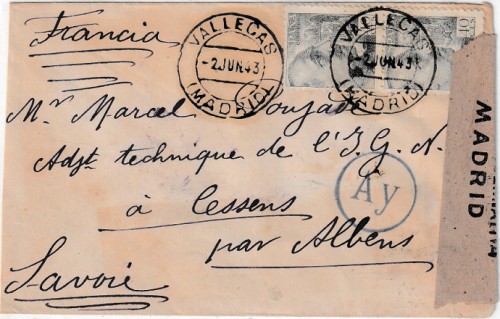 Francia
VALLECAS
-2.JUN.43
(MADRID)
VALLECAS
-2.JUN.43
(MADRID)
Mr Marcel Poujade
Adjt technique de l'I.G.N.
à Cessens
par Albens
Savoie
Ay
MADRID